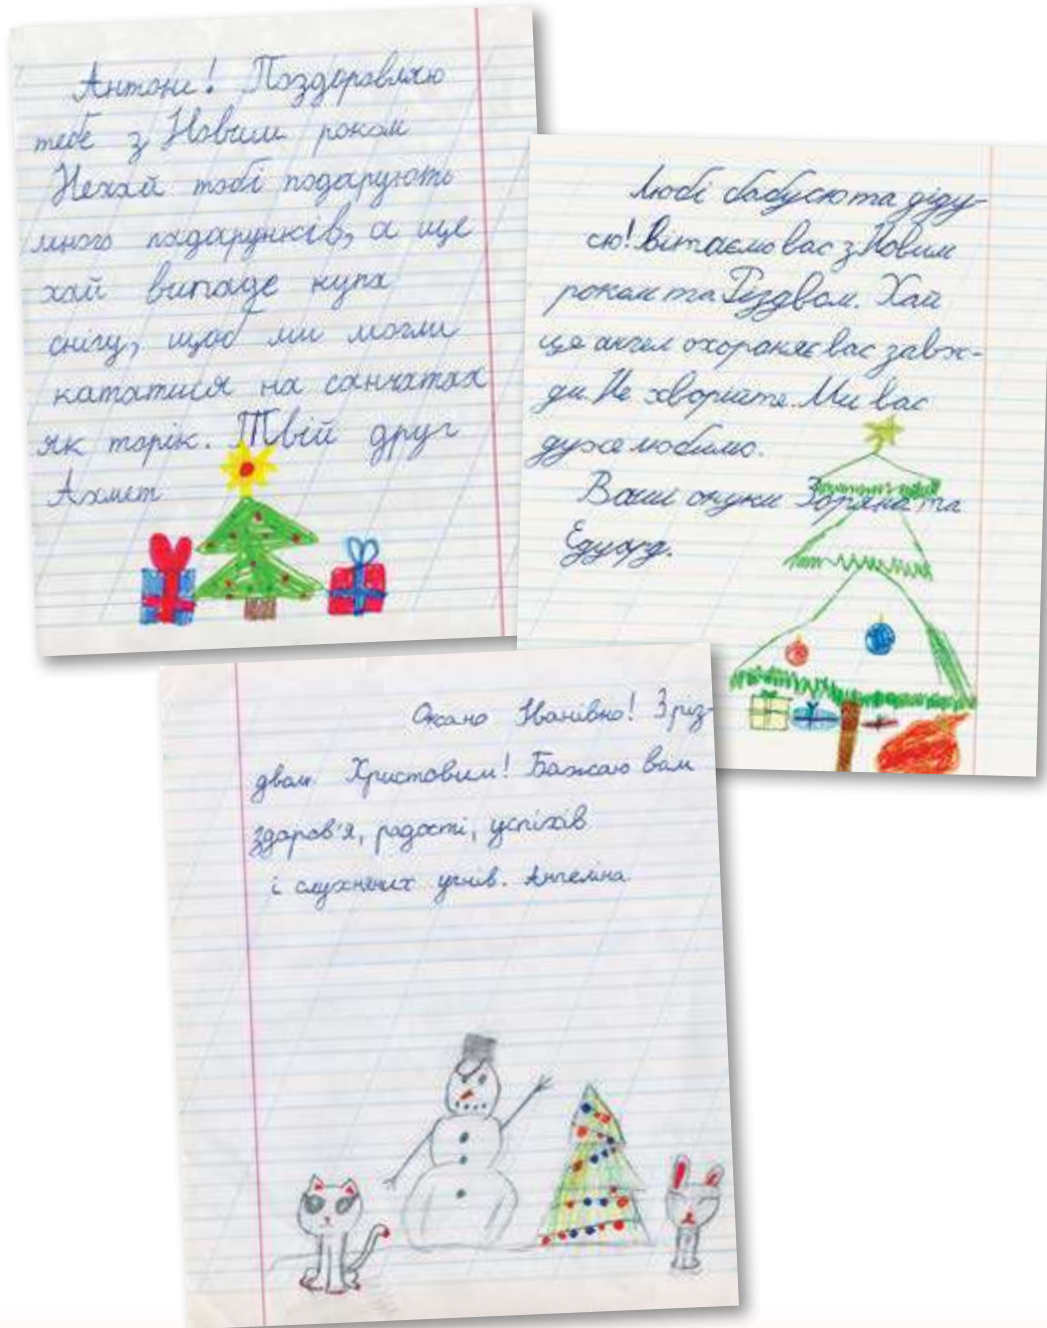 Антоне! Поздоровляю
тебе з Новим роком
Нехай тобі подарують
много падарунків, а ще
хай випаде купа
снігу, щоб ми могли
кататися на санчатах
як торік. Твій друг
Ахмет
Любі бабусю та діду-
сю! Вітаємо вас з Новим
роком та Різдвом. Хай
ця ангел охороняє вас завж-
ди. Не хворійте. Ми вас
дуже любимо.
Ваші онуки Зоряна та
Едуард.
Оксано Іванівно! З різ-
двом Христовим! Бажаю вам
здоров'я, радості, успіхів
і слухняних учнів. Ангеліна.